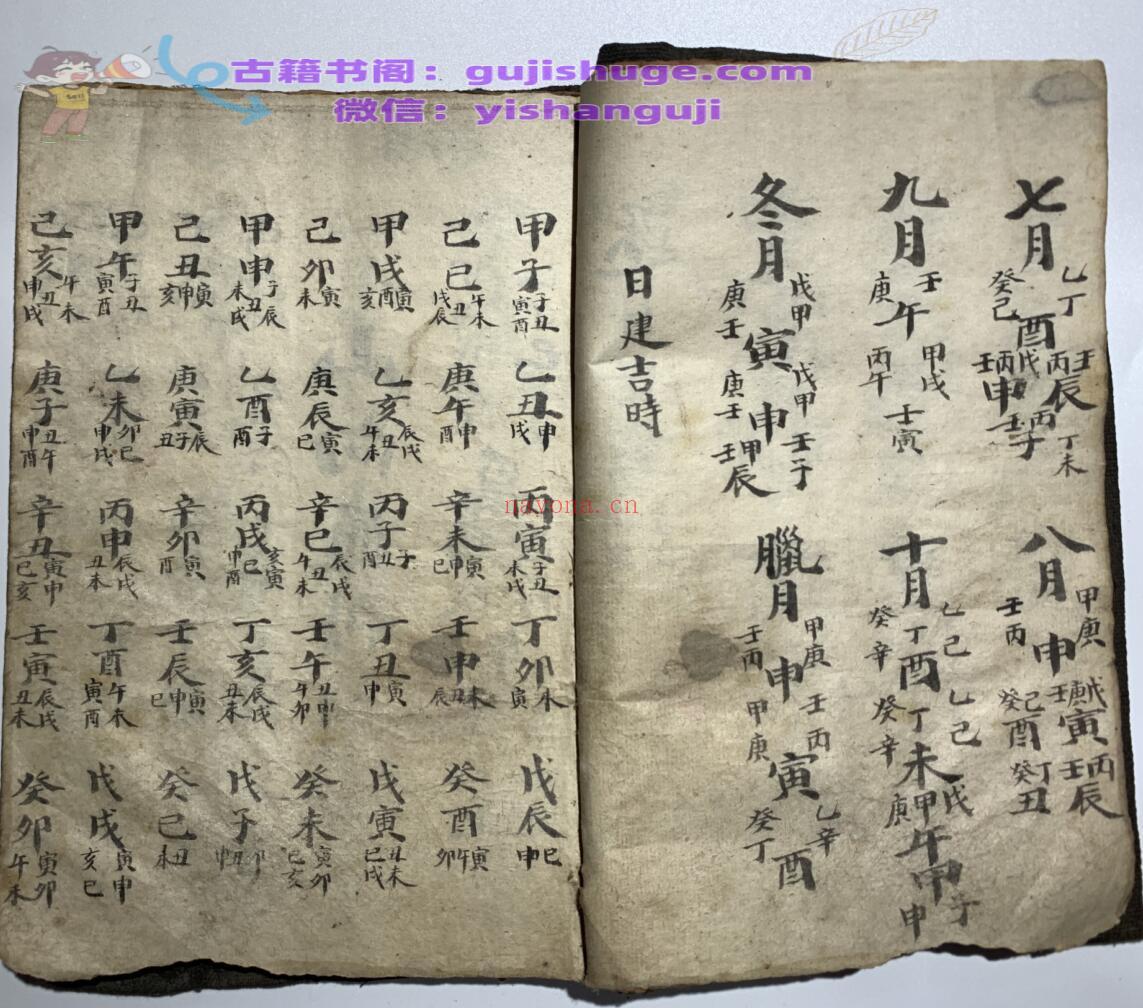 古籍书阁：gujishuge.com
微信：yishanguji
nayona.cn
七月 乙丁 癸己 酉 壬丙戊 丙壬 辰 申 壬丙 子 丁未
八月 甲庚 壬丙 申 戊 壬 寅 癸己 酉 壬丙 辰 癸丁 丑
九月 壬 庚 午 甲戌 丙午 壬寅
十月 乙己 丁 癸辛 酉 乙己 丁 癸辛 未 戊 甲 庚 午 甲子 申
冬月 戊甲 庚壬 寅 戊甲 庚壬 申 壬子 甲 壬辰
臘月 甲庚 壬丙 申 壬丙 甲庚 寅 乙辛 癸丁 酉
日建吉時
甲子 子丑寅酉 乙丑 申戌 丙寅 子丑未戌 丁卯 未寅 戊辰 巳申
己巳 午未丑戌辰 庚午 申酉 辛未 寅申巳 壬申 未丑辰 癸酉 寅午卯
甲戌 寅酉亥 乙亥 辰戌丑午未 丙子 子丑酉 丁丑 寅申 戊寅 丑未巳戌
己卯 寅未 庚辰 寅巳 辛巳 辰戌丑午未 壬午 丑申午卯 癸未 寅卯巳亥
甲申 子辰丑未戌 乙酉 子酉 丙戌 亥寅巳申酉 丁亥 辰戌丑未 戊子 卯丑申
己丑 寅申亥 庚寅 辰子丑 辛卯 寅酉 壬辰 寅申巳 癸巳 丑未
甲午 子丑寅酉 乙未 卯巳申戌 丙申 辰戌丑未 丁酉 午未寅酉 戊戌 寅申亥巳
己亥 午未丑申戌 庚子 丑午申酉 辛丑 寅申巳亥 壬寅 辰戌丑未 癸卯 寅卯午未